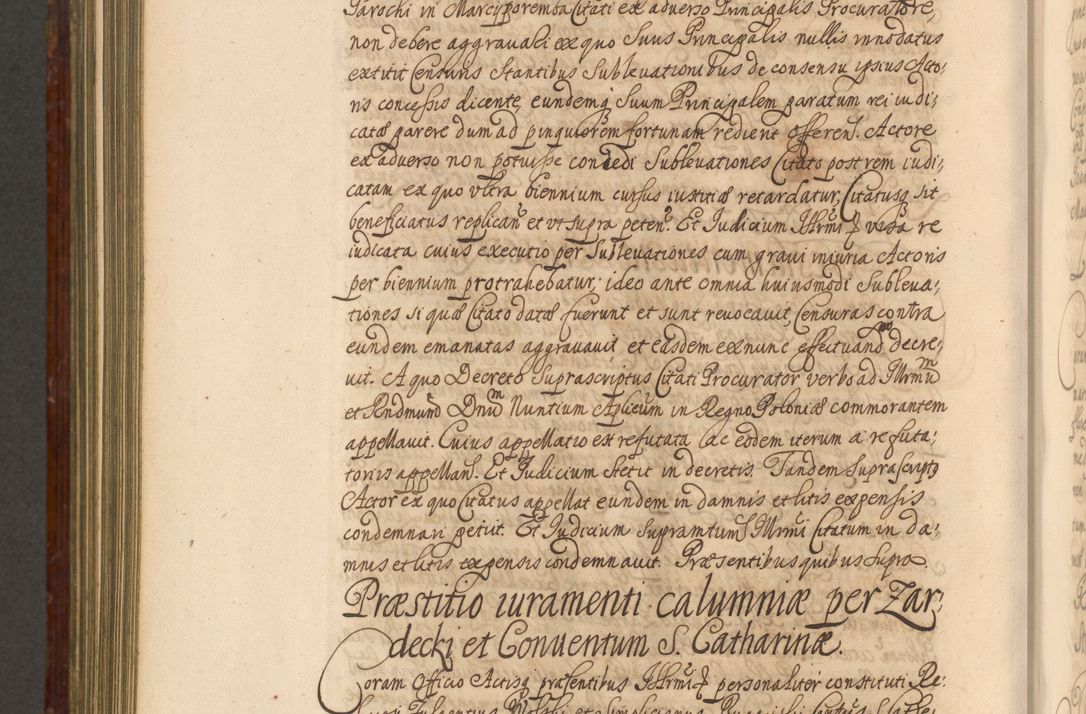 Parochi in Marcyporemba Citati ex adverso Principalis Procuratore,
non debere aggravari ex quo Suus Principalis nullis innodatus
extitit Censuris Stantibus Sublevationibus de consensu ipsius Acto;
ris concessis dicente, eundemq Suum Principalem paratum rei iudi;
catæ parere dum ad pinguiorem fortunam redierit offeren. Actore
ex adverso non potuisse concedi Sublevationes Citato post rem iudi;
catam ex quo ultra biennium cursus iustitiæ retardatur, Citatusq sit
beneficiatus replican et ut supra peten. Et Iudicium Illrmi visa re
iudicata cuius executio per Sublevationes cum gravi iniuria Actoris
per biennium protrahebatur; ideo ante omnia huiusmodi Subleva;
tiones si quæ Citato datæ fuerunt et sunt revocavit, Censuras contra
eundem emanatas aggravavit et easdem ex nunc effectuand decre;
vit. A quo Decreto Suprascriptus Citati Procurator verbo ad Illrmu
et Rendmund Dnum Nuntium Aplicum in Regno Poloniæ commorantem
appellavit. Cuius appellatio est refutata ac eodem iterum a refuta;
toriis appellan. Et Iudicium stetit in decretis. Tandem Suprascripts
Actor ex quo Citatus appellat eundem in damnis et litis expensis
condemnari petiit. Et Iudicium Illrmi Citatum in da;
mnis et litis expensis condemnavit. Præsentibus quibus Supra.
Præstitio iuramenti calumniæ per Zar;
decki et Conventum S. Catharinæ.
Coram Officio Actisq præsentibus Illrmi personaliter constituti Re: